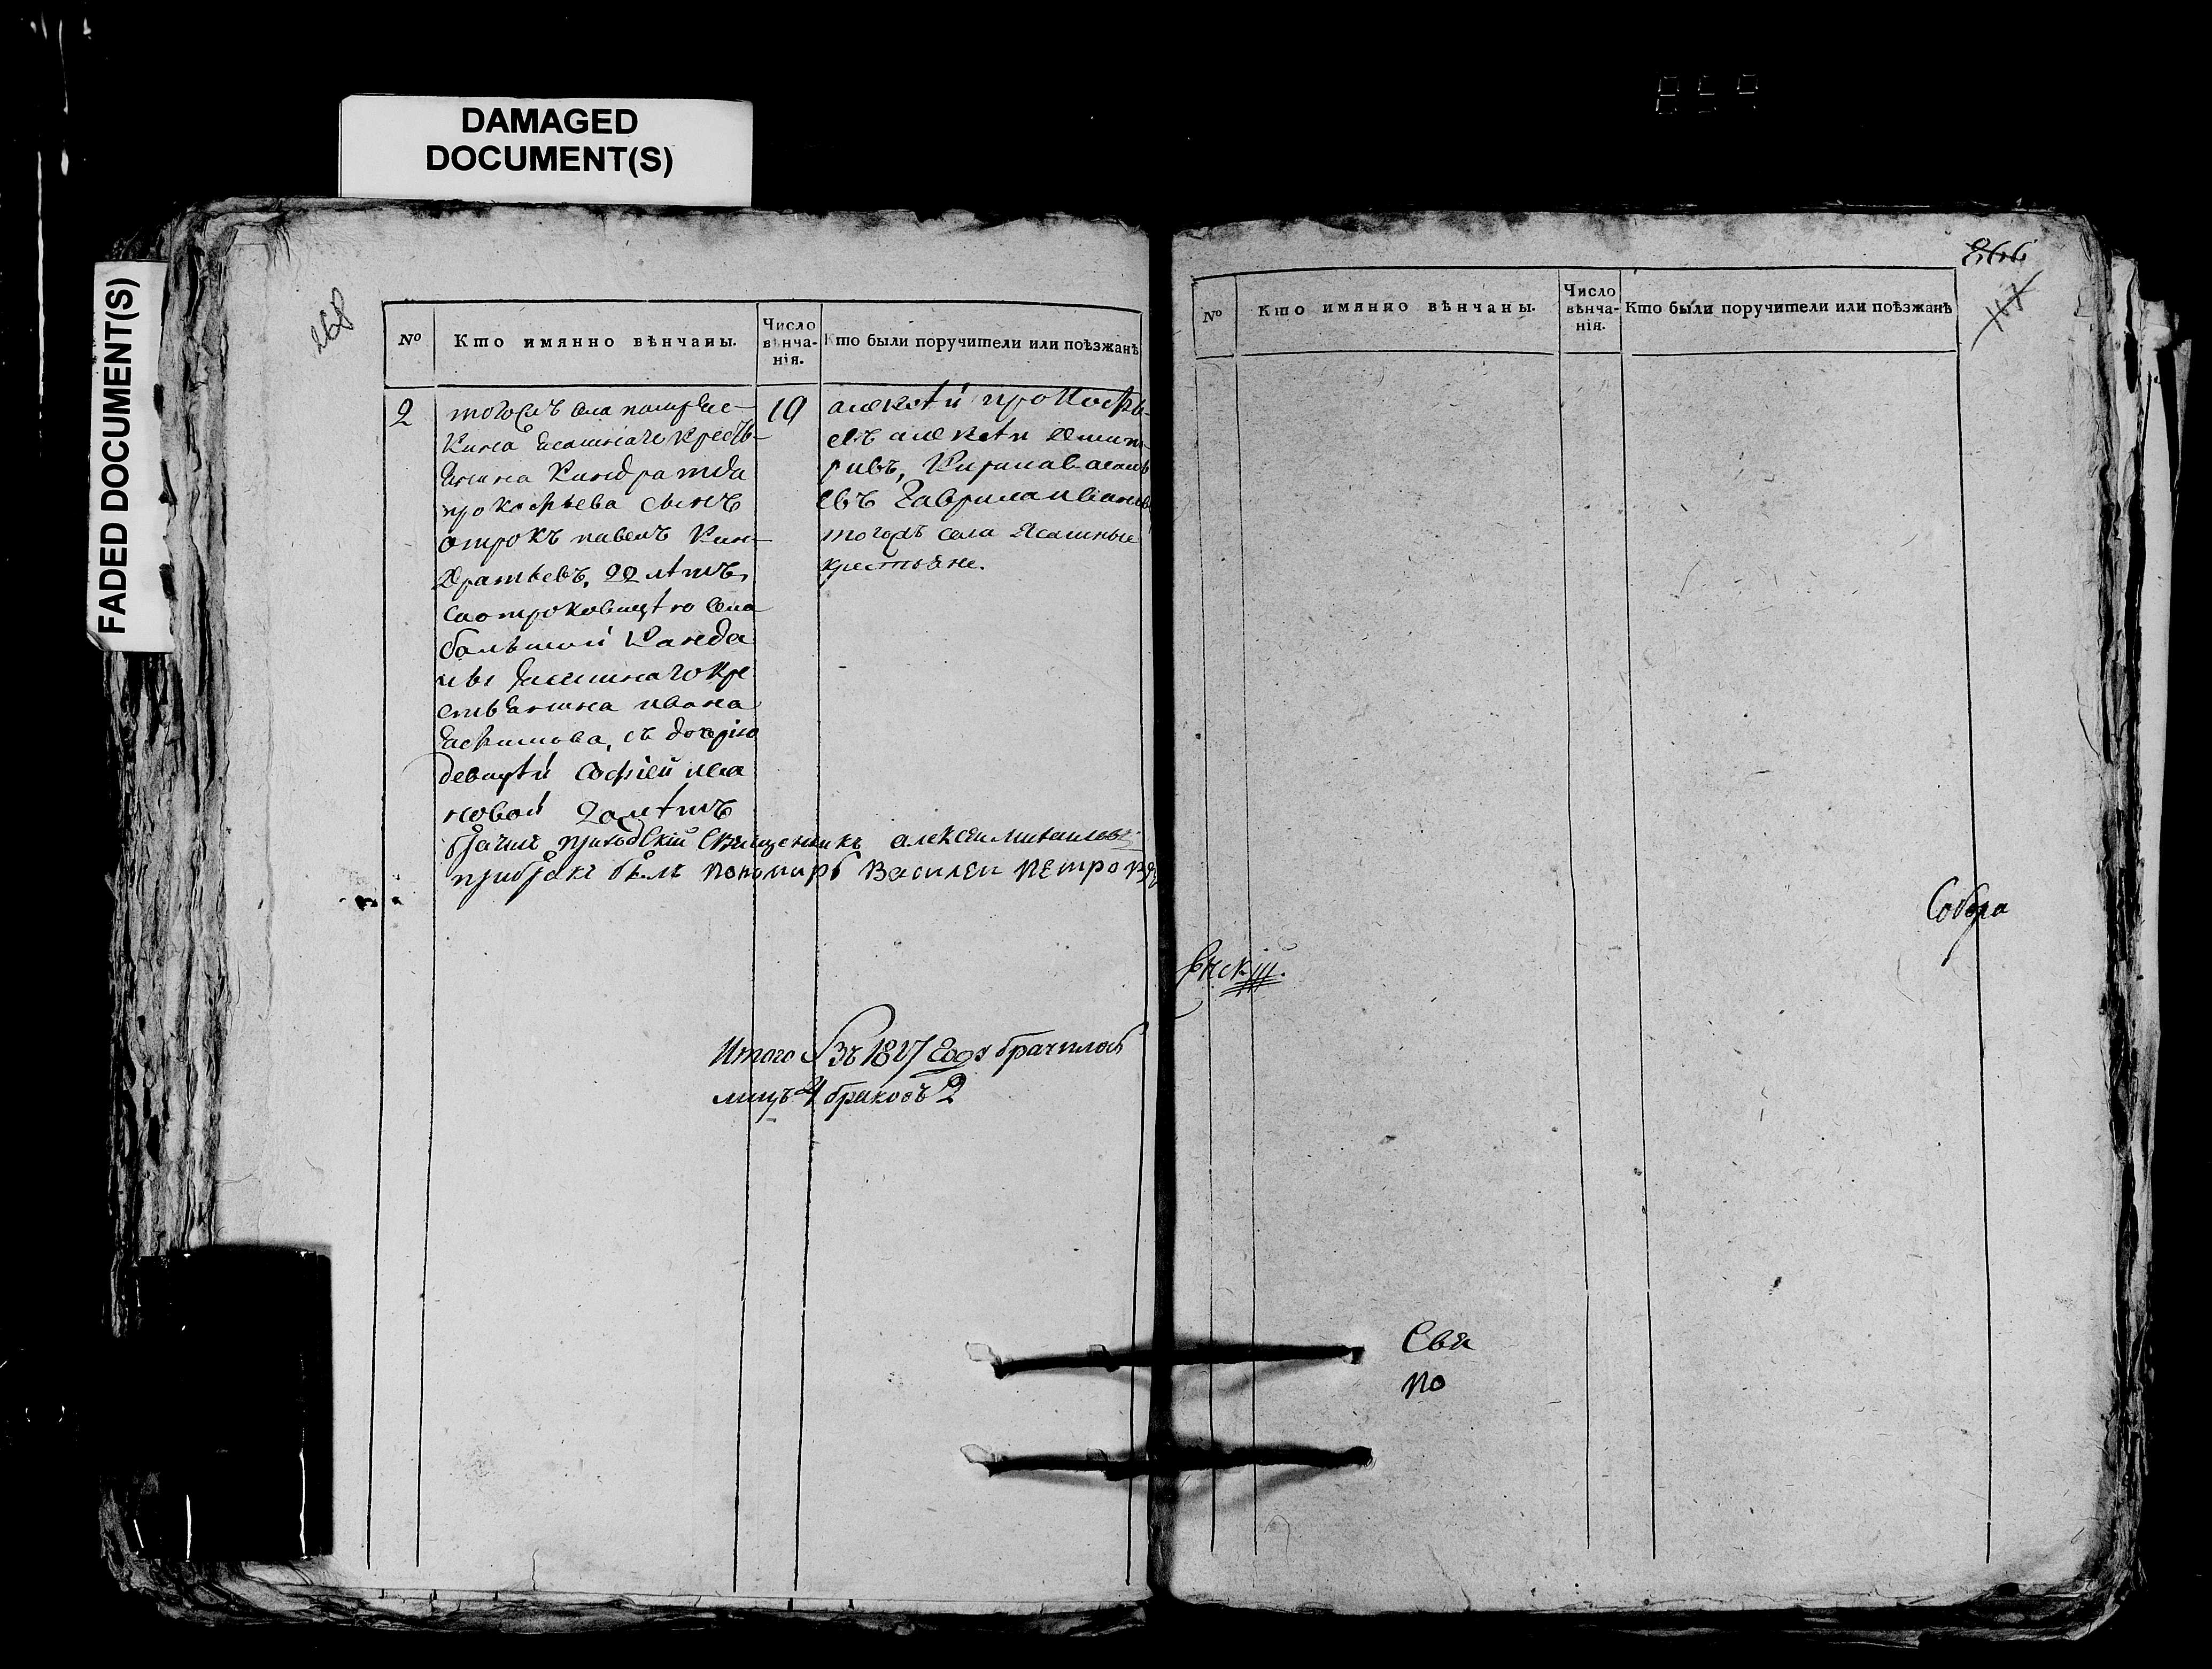 859
DAMAGED
DOCUMENT(S)
FADED DOCUMENT(S)
268
№
Кто имянно вѣнчаны.
Число
вѣнча-
нія.
Кто были поручители или поѣзжанѣ
2
тогожъ села
Кина Ясашнаго Кресть-
янина Киндратда
прокофьева сынъ
отрокъ павелъ Кин-
Дратьевъ, 22 лѣтъ,
Села
большой Канда
лы Ясашнаго Кре
стьянина ивана
Яфимова, съ дочерью
девицѣй Софией ива
новой 20 лѣтъ
10
алексѣй прокофь-
евъ алексѣй Дмит
ривъ, Кирила
евъ Гаврила ивановъ
тогожъ села Ясашные
крестьяне.
брачилъ приходскій Священникъ алексеи Михаиловъ
прибракѣ былъ пономарь Василеи Петровъ
Итого Въ 1817 Году брачилось
лицъ 4 браковъ 2
266
117
№
Кто имянно вѣнчаны.
Число
вѣнча-
нія.
Кто были поручители или поѣзжанѣ
Собора
енскій.
Свя
По